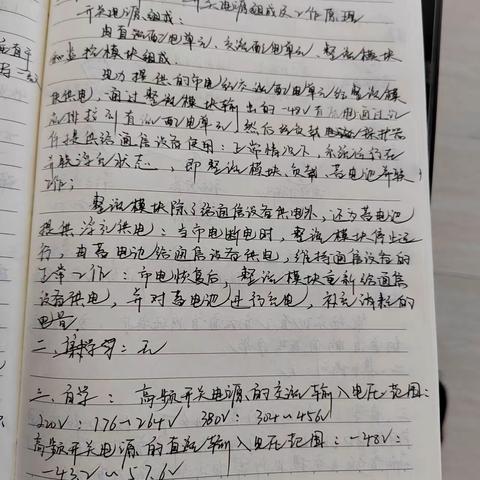 开关电源组成及工作原理
开关电源组成：
由直流配电单元、交流配电单元、整流模块
和监控模块组成.
电力提供的市电经交流配电单元给整流模
块供电，通过整流模块输出的-48V直流电通过汇
流排接到直流配电单元，然后经负载
件提供给通信设备使用：正常情况下，系统运行在
并联浮充状态，即整流模块、负载、蓄电池并联
工作；
整流模块除了给通信设备供电外，还为蓄电池
提供浮充供电：当市电断电时，整流模块停止运
行，由蓄电池给通信设备供电，维持通信设备的
正常工作：市电恢复后，整流模块重新给通信
设备供电，并对蓄电池进行充电，补充消耗的
电量.
二、集中学习：无
三、自学：高频开关电源的交流输入电压范围：
220V：176~264V 380V：304~456V
高频开关电源的直流输入电压范围：-48V：
-43.2~57.6V